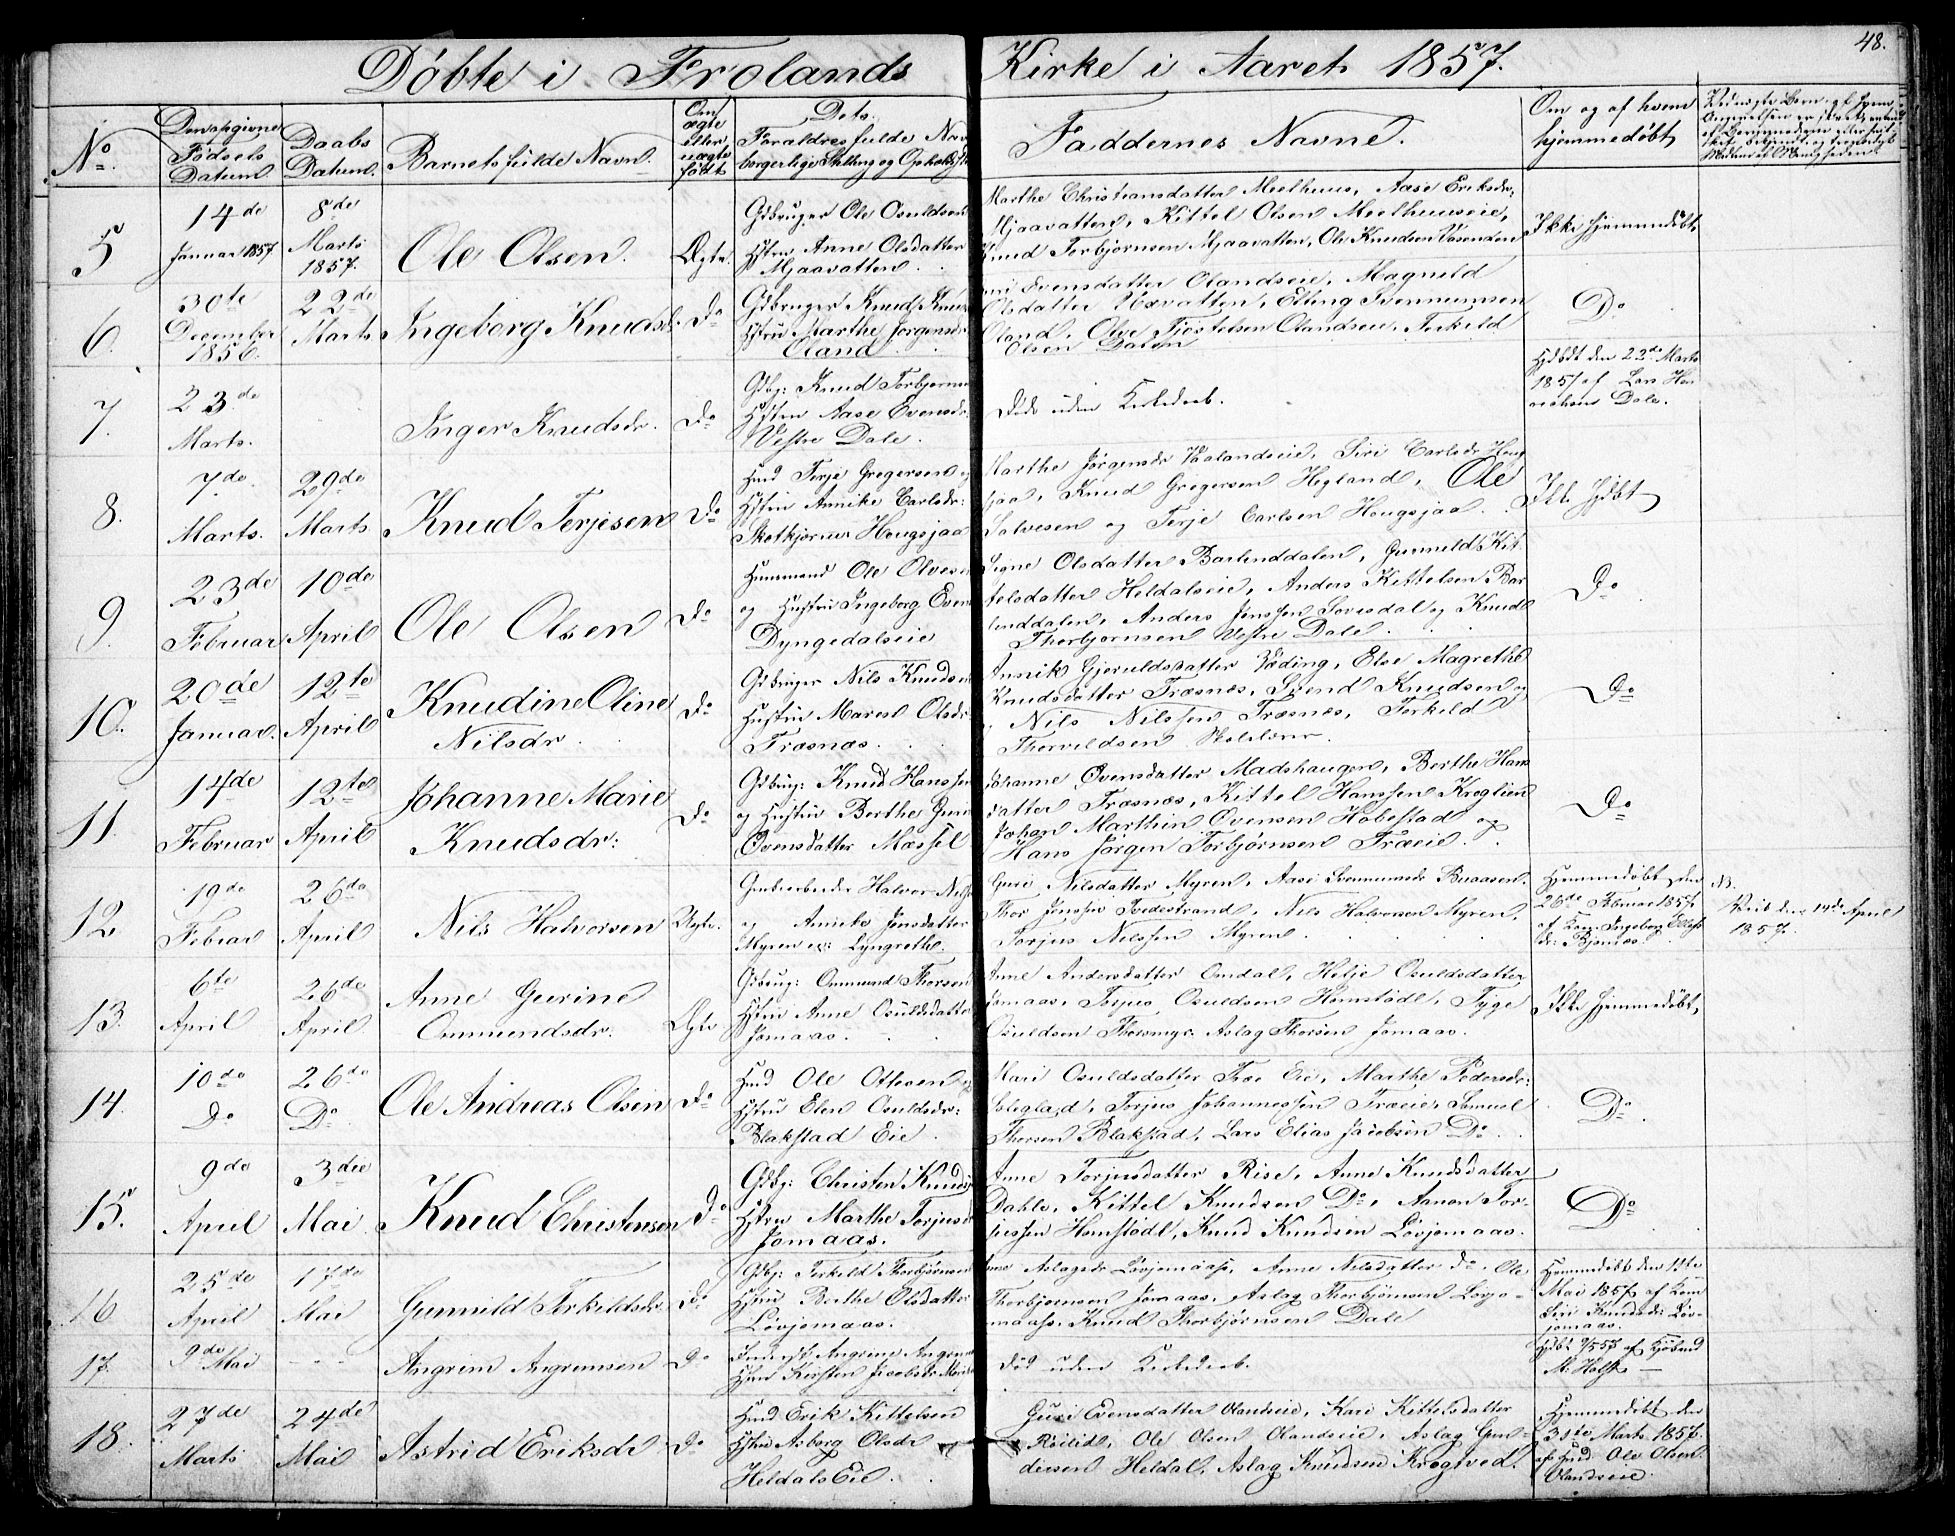 48.
Døbte i Frolands Kirke i Aaret 1857.
No.
Den opgivne Fødsels Datum.
Daabs Datum.
Barnets fulde Navn.
Om ægte eller uægte født
Dets Forældres fulde Navn borgerlige Stilling og Opholds
Faddernes Navne.
Om og af hvem hjemmedøbt
5
14de Januar 1857.
8de Marts 1857.
Ole Olsen.
Ægte.
Gdbruger Ole Osuldsen
Hstru Anne Olsdatter
Mjaavatten.
Marthe Christiansdatter Meelhuus, Aase Eriksdr.
Mjaavatten, Kittel Olsen Meelhuuseie,
Knud Torbjørnsen Mjaavatten, Ole Knudsen
Ikke hjemmedøbt,
6.
30te December 1856.
22de Marts
Ingeborg Knudsdr.
Do
Gdbruger Knud
Hstru Marthe Jørgensdr.
Oland.
Svensdatter Olandseie, Magnild
Olsdatter Uxvatten, Elling Svennumsen
Oland, Olve Tjøstelsen Olandseie, Terkild
Olsen Dalen
Do
7.
23de Marts.
Inger Knudsdr.
Do
Gdbg: Knud Torbjørnsen
Hstru Aase Evensdr.
Vestre Dale.
Døde uden Kirkedaab.
Hjdøbt den 23de Marts
1857 af Lars
Dale.
8.
7de Marts.
29de Marts
Knud Terjesen
Do
Hmd Terje Gregersen og
Hstru Annike Carlsdr.
Hougsjaa
Marthe Jørgensdr Vaalandseie, Siri Carlsdr Houg
sjaa, Knud Gregersen Hegland, Ole
Salvesen og Terje Carlsen Hougsjaa.
Ikke Hjdbt
9.
23de Februar
10de April
Ole Olsen
Do
Huusmand Ole Olvesen
og Hustru Ingeborg Even
Dyngedalseie
Signe Olsdatter Barlinddalen, Gunnild Kit
telsdatter Heldalseie, Anders Kittelsen Bar
linddalen, Anders Jenssen Sovesdal og Knud
Thorbjørnsen Vestre Dale.
Do
10.
20de Januar.
12te April
Knudine Oline
Nilsdr.
Do
Gdbruger Nils Knudsen
Hustru Maren Olsdr
Træsnæs.
Annik Gjeruldsdatter Væding, Else Magrethe
Knudsdatter Træsnæs, Svend Knudsen og
Nils Nilssen Træsnæs, Terkild
Therkildsen Skolelærer.
Do
11.
14de Februar
12te April
Johanne Marie
Knudsdr:
Do
Gdbrug: Knud Hanssen
og Hustru Berthe Gurine
Ovensdatter Messel
Johanne Ovensdatter Madshaugen, Berthe Hans
datter Træsnæs, Kittel Hanssen Kreglien
Johan Marthin Ovensen Høbestad og
Hans Jørgen Torbjørnsen Træeie.
Do
12
19de Februar
26de April
Nils Halvorsen
Uægte.
Grubearbeider Halvor Nilssen
og Annike Jensdatter
Myren Lyngrothe.
Guri Nilsdatter Myren, Aase Svennumsdr Buaasen.
Thor Jenssen Tvedestrand, Nils Halvorsen Myren,
Torjus Nilssen Myren.
Hjemmedøbt den
26de Februar 1857
af Kone Ingeborg
dr: Bjørnæs
No.
den 19de April
1857.
13.
6te April
26de April.
Anne Gurine
Ommundsdr.
Ægte
Gdbrug: Ommund Thorsen
Hstru Anne Osuldsdatter
Jomaas.
Anne Andersdatter Omdal, Helje Osuldsdatter
Jomaas, Torjus Osuldsen Homstødl, Tyge
Osuldsen Thorsmyr, Aslag Thorsen Jomaas.
Ikke hjemmedøbt,
14.
10de Do
26de Do
Ole Andreas Olsen
Do
Hmd Ole Ottesen og
Hstru Elen Osuldsdr:
Blakstad Eie.
Mari Osuldsdatter Træ Eie, Marthe Pedersdr:
Soleglad, Torjus Johannessen Træeie, Samuel
Thorsen Blakstad, Lars Elias Jacobsen Do.
Do
15.
9de April
3die Mai
Knud Christensen
Do
Gdbg: Christen Knudsen
Hstru Marthe Torjusdr
Jomaas.
Anne Torjusdatter Rise, Anne Knudsdatter
Dahle, Kittel Knudsen Do, Aanon Tor-
jussen Homstødl, Knud Knudsen Løvjomaas.
Do
16
25de April
17de Mai
Gunnild Terkildsdr.
Do
Gdbg: Terkild Thorbjørnsen
Hstru Berthe Olsdatter
Løvjomaas.
Aslagsdr Løvjomaas, Anne Nilsdatter do, Ole
Thorbjørnsen Jomaas, Aslag Thorbjørnsen Løvjo-
maas, Knud Thorbjørnsen Dale
Hjemmedøbt den 12te
Mai 1857 af Kone
Siri Knudsdr: Løv-
jomaas.
17.
9de Mai
Angrim Angrimsen
Do
Inderst Angrim Angrimsen
Hstru Kirsten Jacobsdr
Død uden Kirkedaab.
Hjdbt 9/5 57 af
M. Holst
18.
27de Marts
24de Mai
Astrid Eriksdr
Do
Hmd Erik Kittelsen
Hstru Asborg Olsdr
Heldals Eie.
Guri Evensdatter Olandseie, Kari Kittelsdatter
Røilid, Ole Olsen Olandseie, Aslag Gun-
dersen Heldal, Aslag Knudsen Krogtved.
Hjemmedøbt den
31te Marts 1857.
af Hmd Ole Olsen
Olandseie.